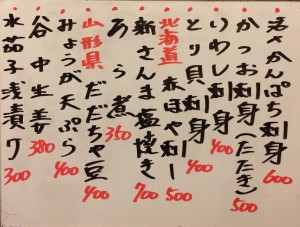 活かんぱち刺身 600
かつお刺身(たたき) 500
いわし刺身 400
とり貝刺身 400
北海道 赤ほや刺し 500
新さんま塩焼き 700
あら煮 350
山形県 だだちゃ豆 400
みょうが天ぷら 400
谷中生姜 380
水茄子浅漬け 300